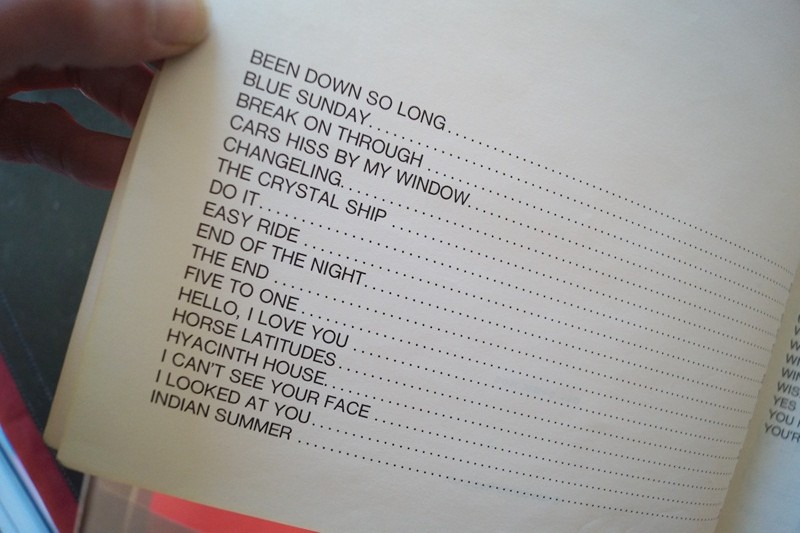 BEEN DOWN SO LONG
BLUE SUNDAY
BREAK ON THROUGH
CARS HISS BY MY WINDOW
CHANGELING
THE CRYSTAL SHIP
DO IT
EASY RIDE
END OF THE NIGHT
THE END
FIVE TO ONE
HELLO, I LOVE YOU
HORSE LATITUDES
HYACINTH HOUSE
I CAN'T SEE YOUR FACE
I LOOKED AT YOU
INDIAN SUMMER
YES
YOU